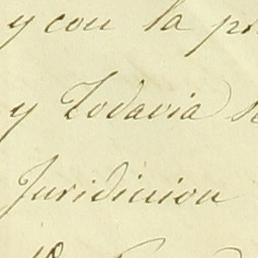 y con la
y Todavia
Juridicion